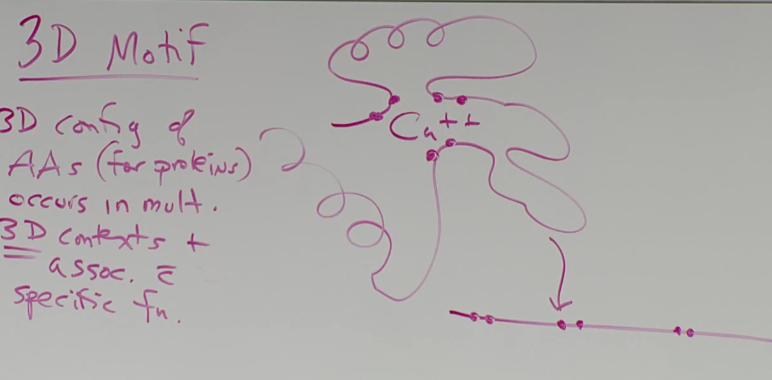 3D Motif
3D config of
AAs (for proteins)
occurs in mult.
3D contexts +
assoc. c̄
specific fn.
Ca++